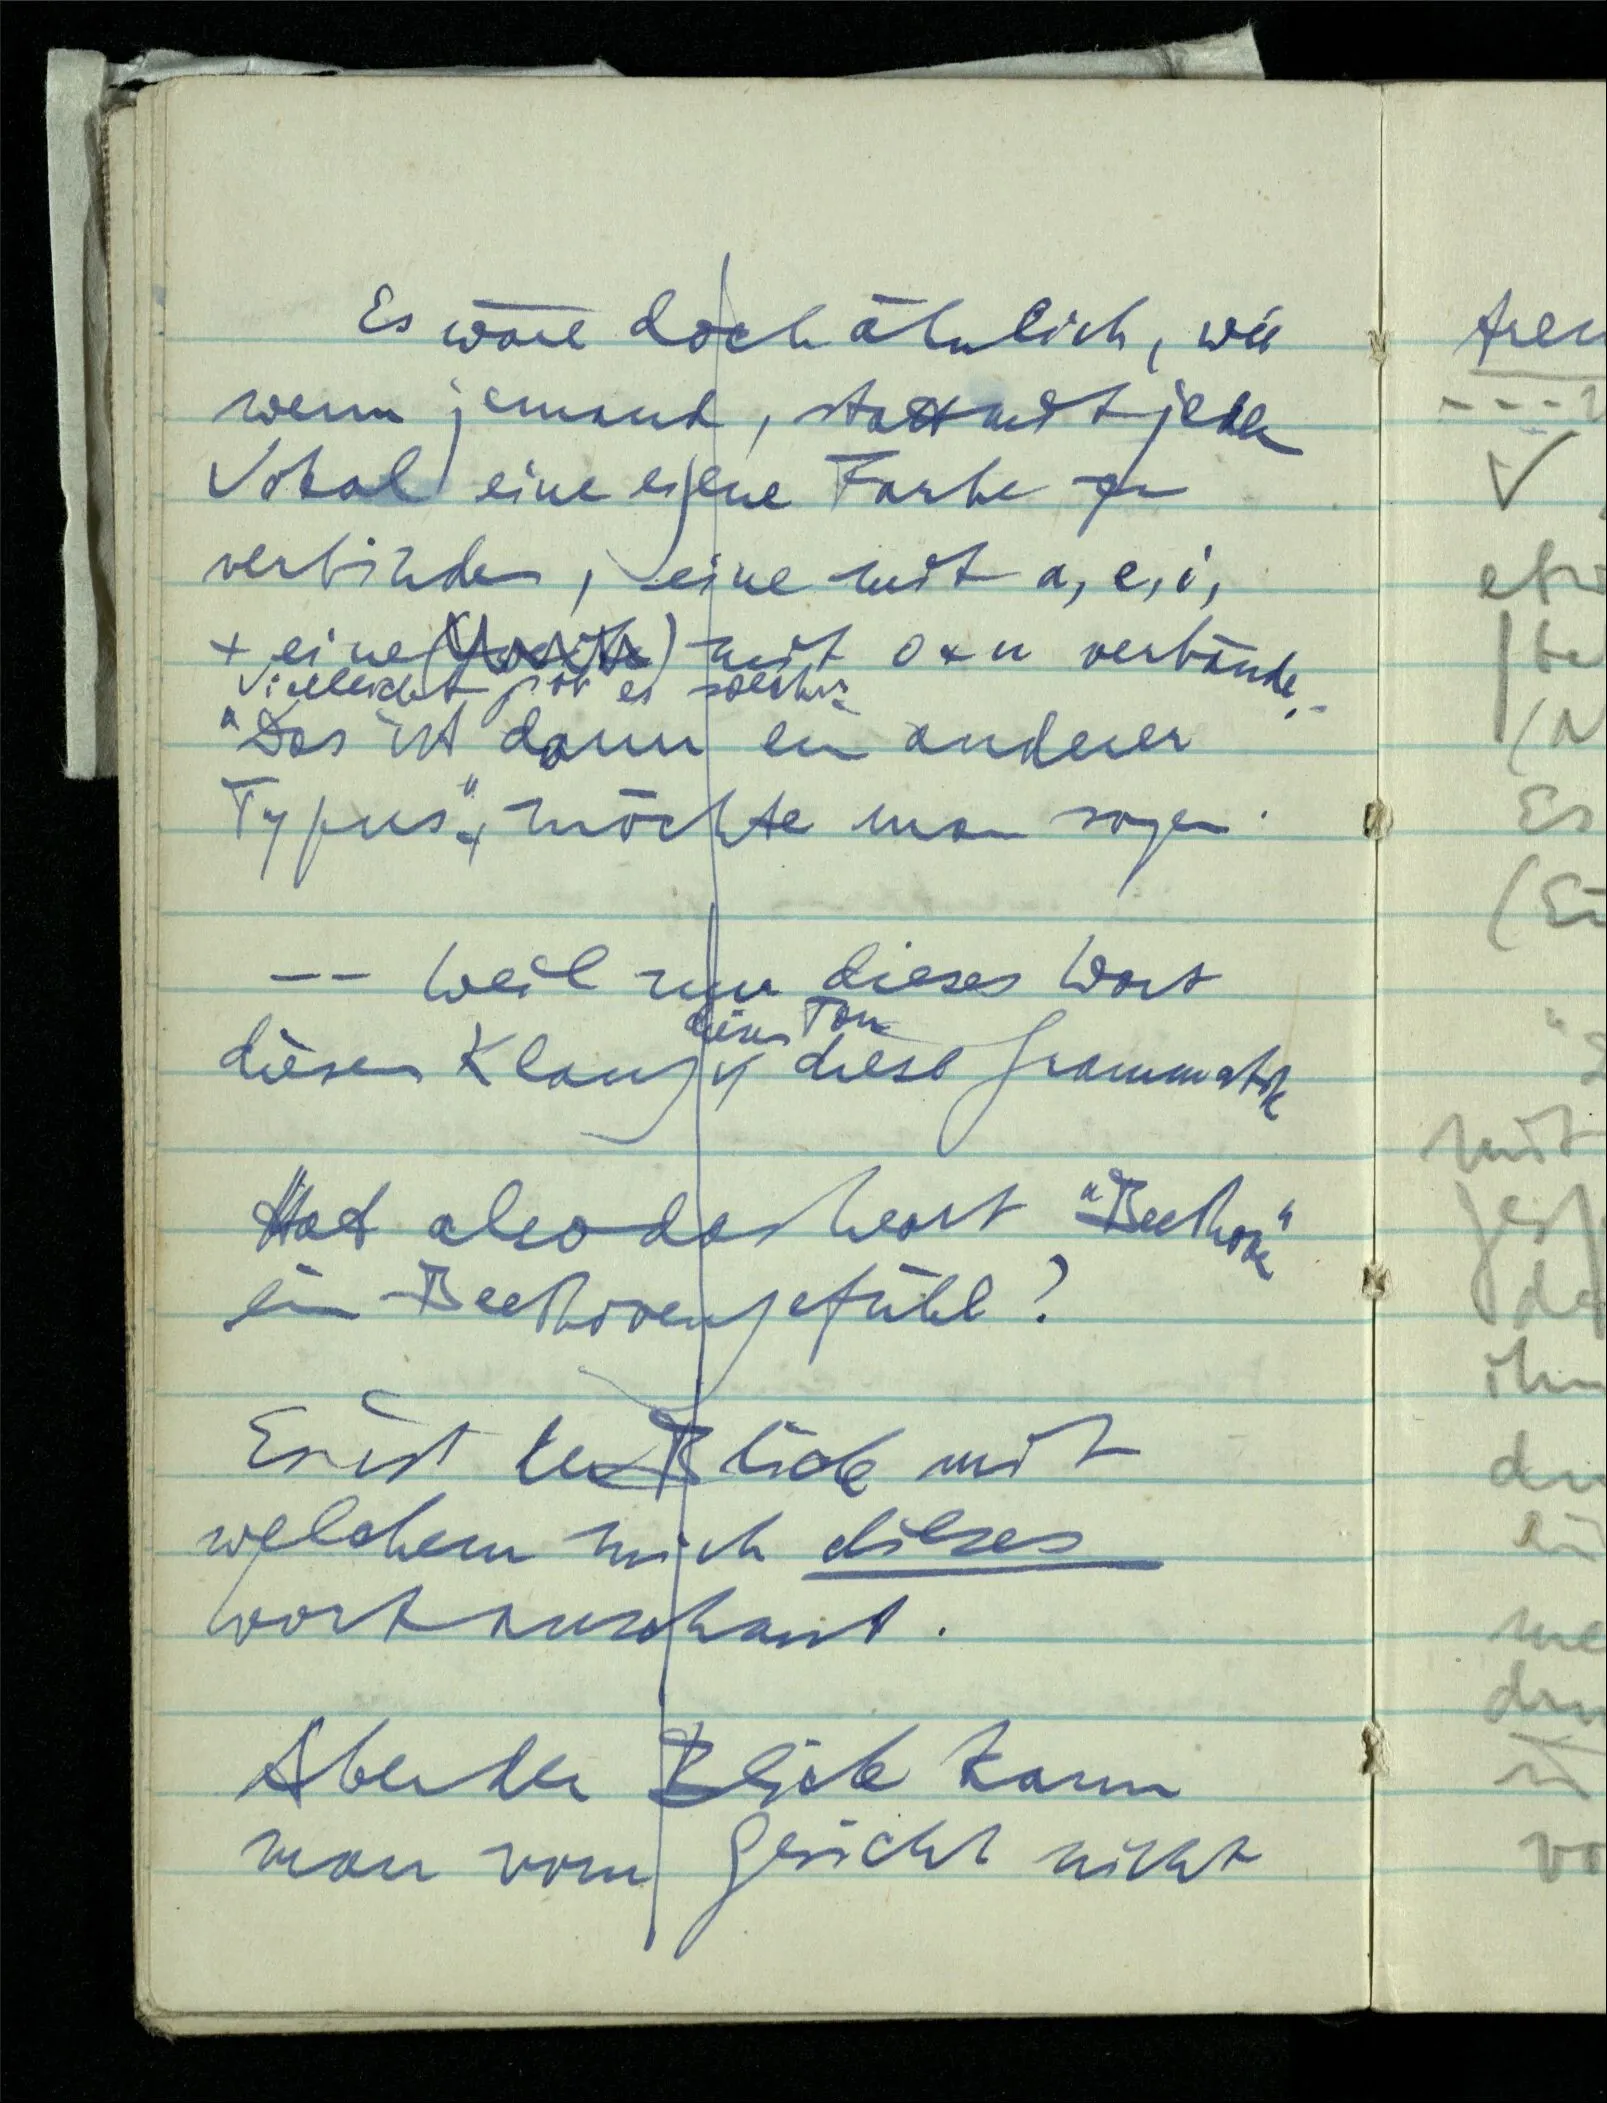 Es wäre doch ähnlich, wie
wenn jemand, statt mit jedem
Vokal eine eigene Farbe zu
verbinden, eine mit a, e, i,
+ eine mit o + u verbände.
Vielleicht gibt es solche:
"Das ist dann ein anderer
Typus", möchte man sagen.
-- Weil nun dieses Wort
diesen Ton
diesen Klang, diese Grammatik
Hat also das Wort "Beethoven"
ein Beethovengefühl?
Es ist der Blick mit
welchem mich dieses
Wort anschaut.
Aber der Blick kann
man vom Gesicht nicht
Es
mit